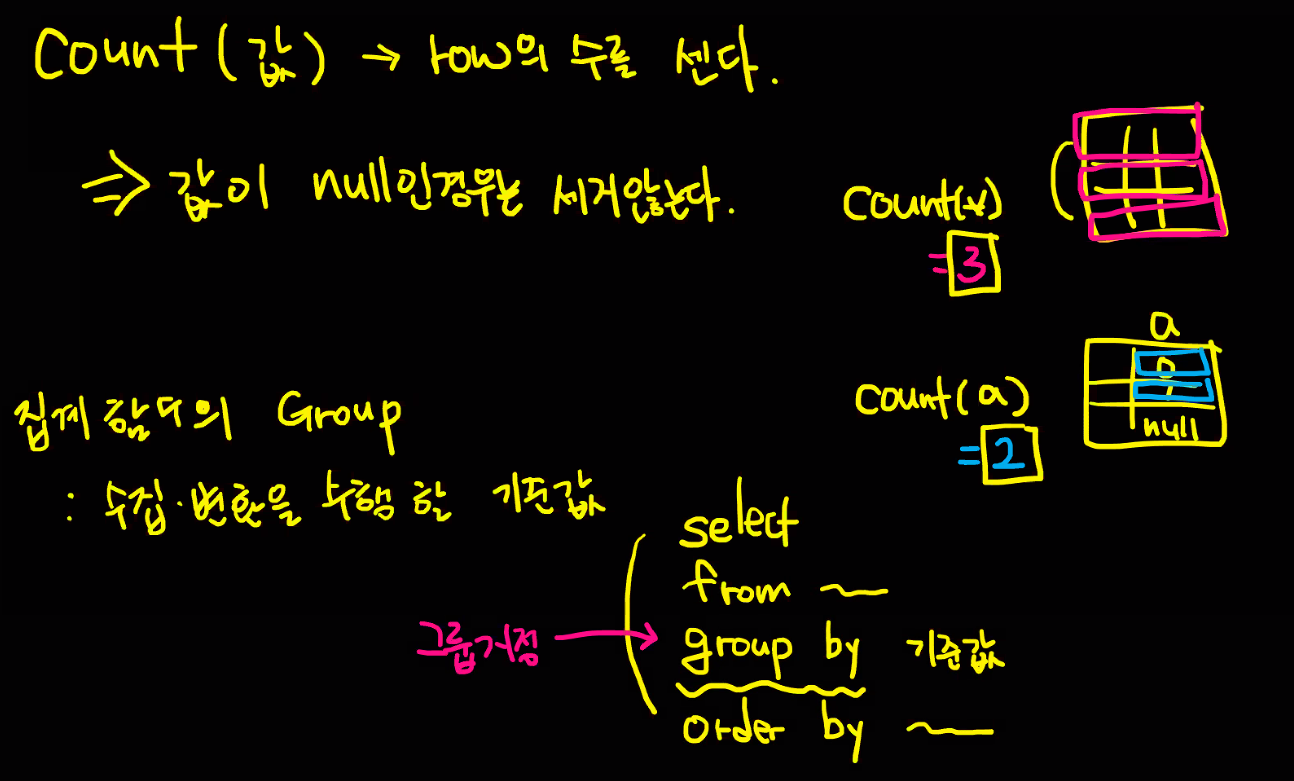 Count (값) → row의 수를 센다.
⇒ 값이 null인경우는 세지않는다.
count(*)
= 3
a
0
1
null
count(a)
= 2
집계함수의 Group
: 수집·변환을 수행할 기준값
select
from ~
그룹지정 → group by 기준값
order by ~